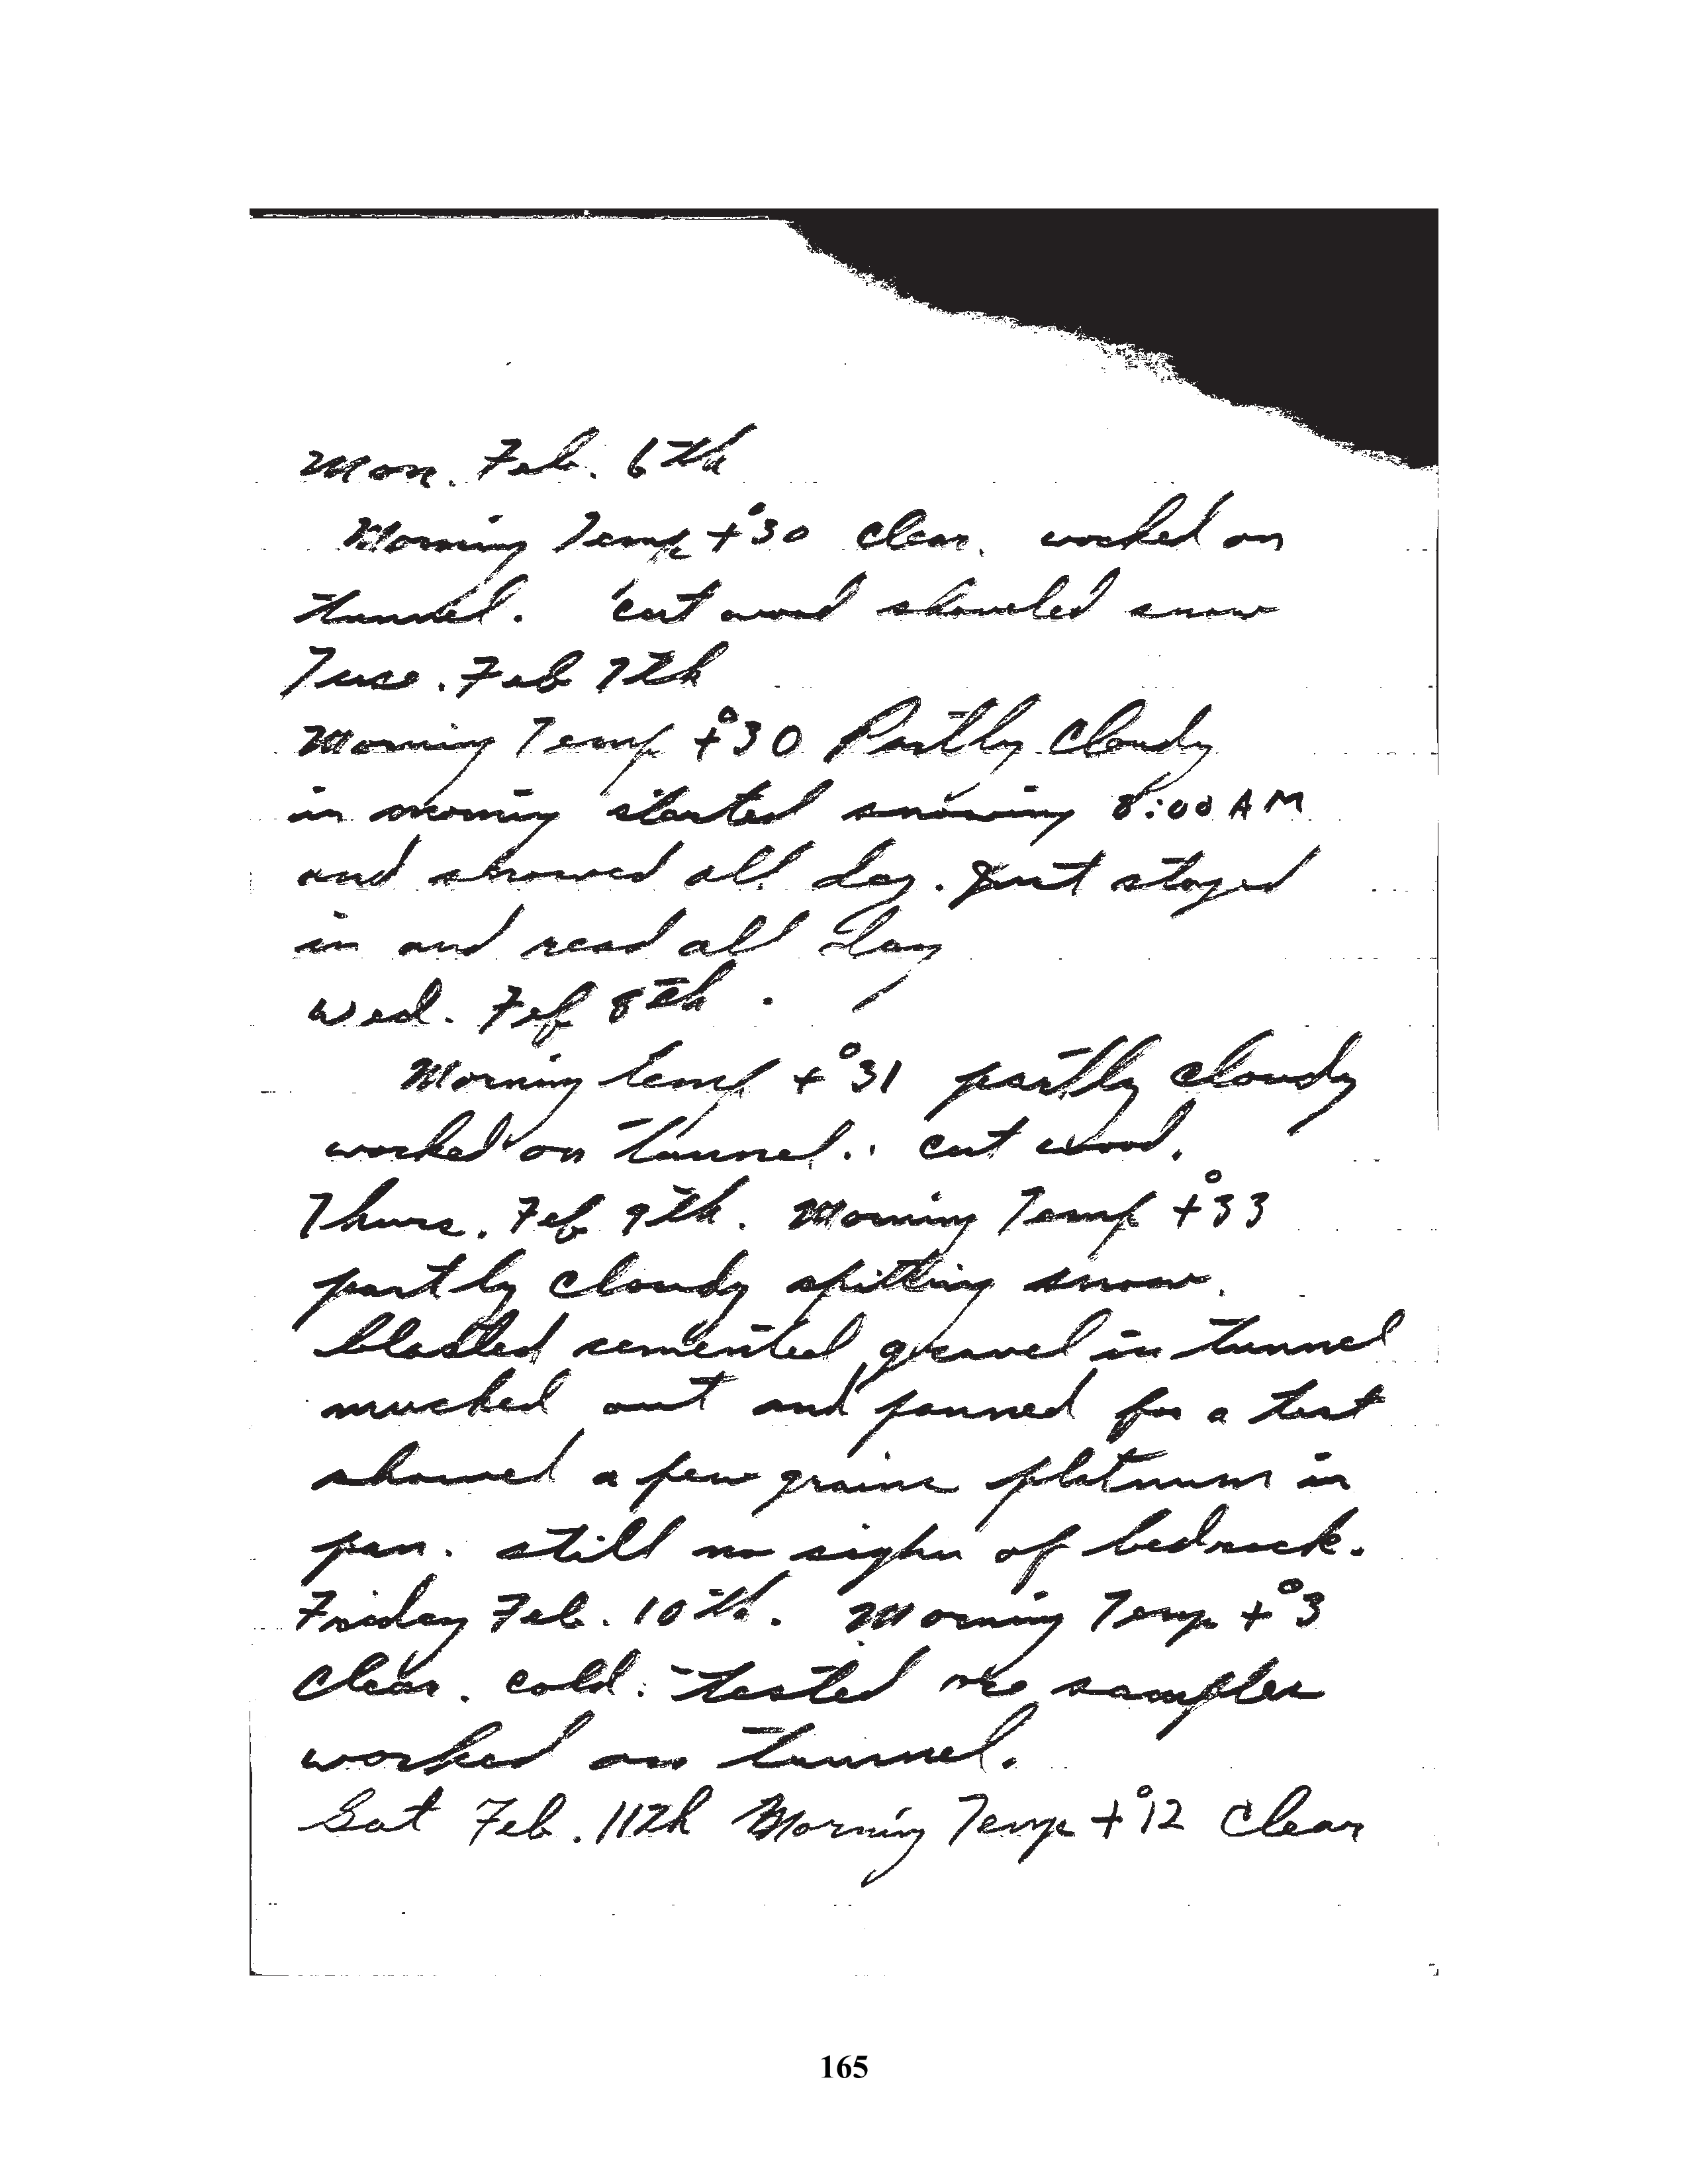 Mon. Feb. 6th
Morning Temp +°30 clear. worked on
tunnel. cut wood shoveled snow
Tues. Feb 7th
Morning Temp +°30 Partly Cloudy
in morning started snowing 8:00 AM
and snowed all day. Just stayed
in and read all day
Wed. Feb 8th.
Morning temp +°31 partly cloudy
worked on tunnel. cut wood.
Thurs. Feb 9th. Morning Temp +°33
partly cloudy spitting snow.
blasted cemented gravel in tunnel
mucked out and panned for a test
showed a few grains platnum in
pan. still no sighn of bedrock.
Friday Feb. 10th. Morning Temp +°3
Clear. cold. tested ore samples
worked on tunnel.
Sat Feb. 11th Morning Temp +°12 Clear
165